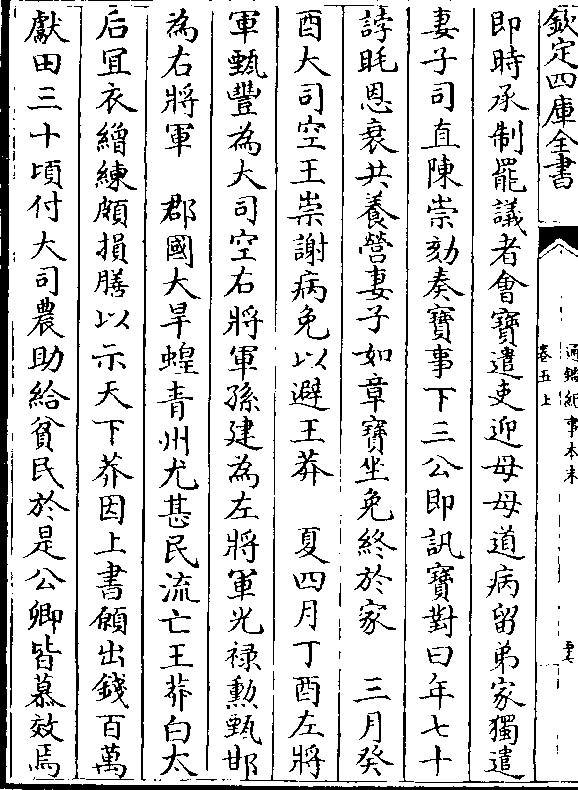 欽定四庫全書
通鑑紀事本末
卷五上
即時承制罷議者會寶遣吏迎母母道病留弟家獨遣
妻子司直陳崇劾奏寶事下三公即訊寶對曰年七十
誖眊恩衰共養營妻子如章寶坐免終於家　三月癸
酉大司空王崇謝病免以避王莽　夏四月丁酉左將
軍甄豐為大司空右將軍孫建為左將軍光禄勲甄邯
為右將軍　郡國大旱蝗青州尤甚民流亡王莽白太
后宜衣繒練頗損膳以示天下莽因上書願出錢百萬
獻田三十頃付大司農助給貧民於是公卿皆慕效焉